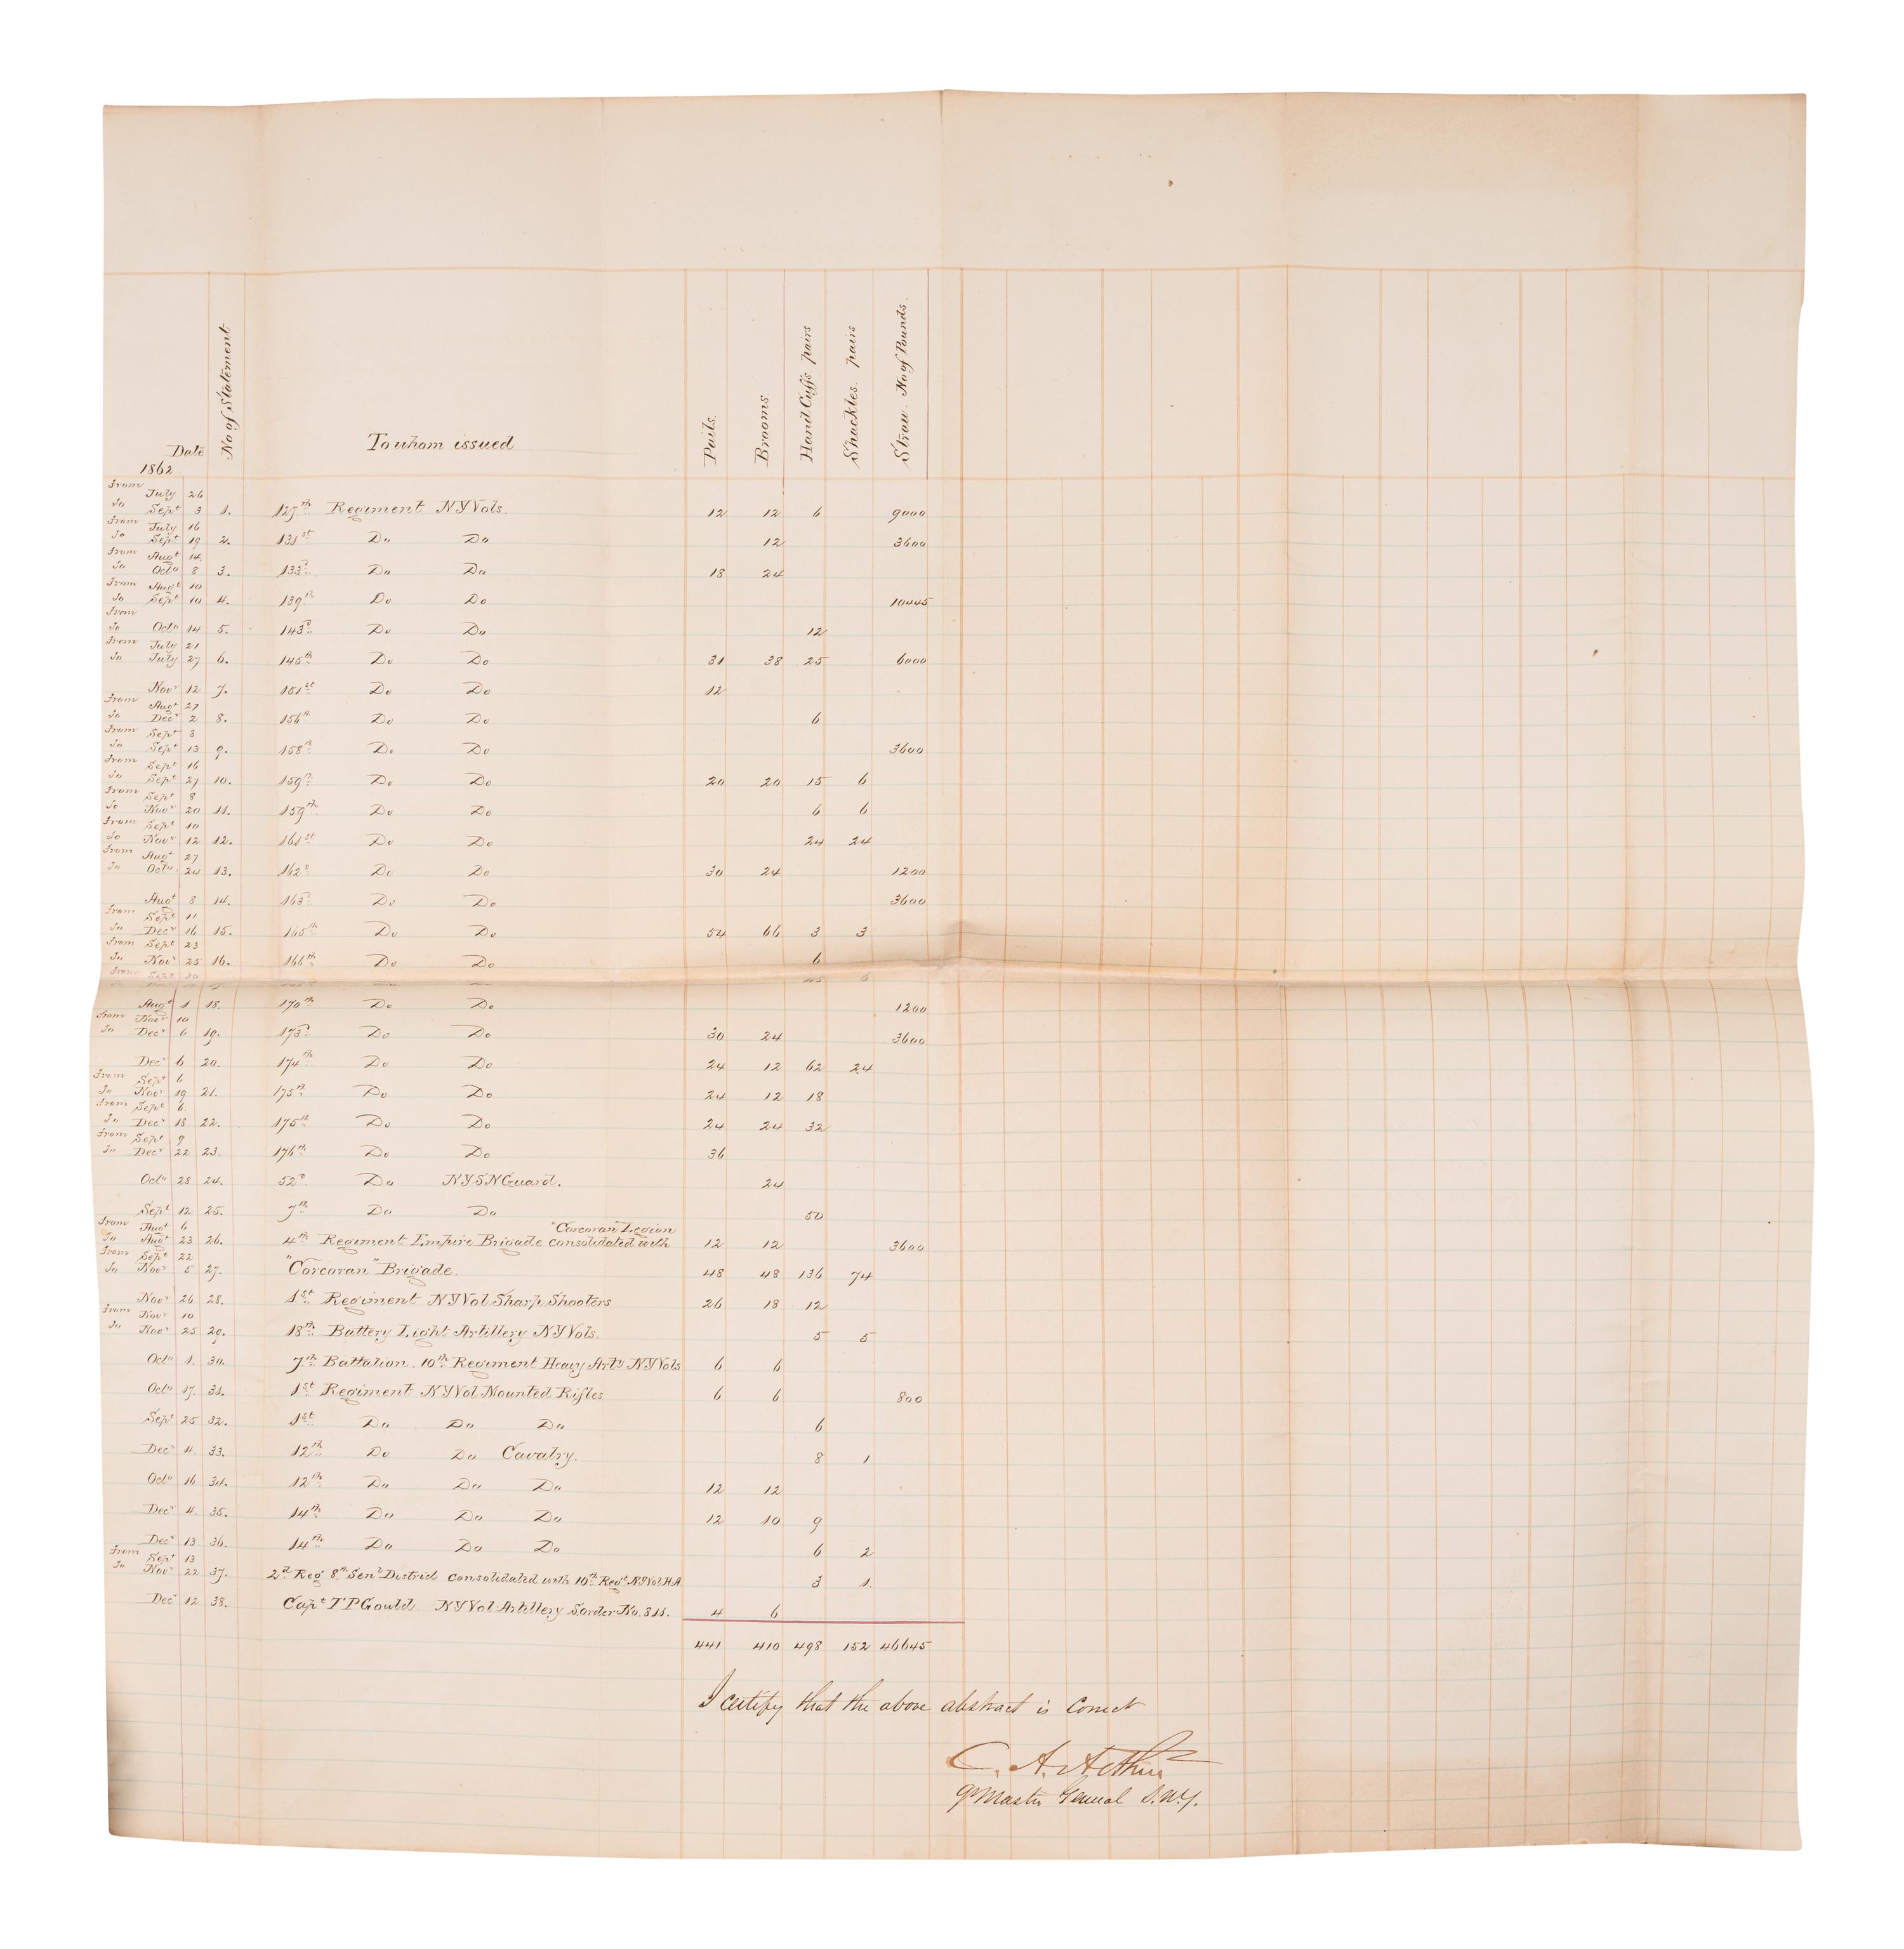 Date
1862
No of Statement
To whom issued
Pails.
Brooms
Hand Cuffs pairs
Shackles. pairs
Straw. No of Pounds.
From July 26
To Sept 3 1. 127th Regiment NYVols. 12 12 6 9000
From July 16
To Sept 19 2. 131st Do Do 12 3600
From Augt 14.
To Octo 8 3. 133d Do Do 18 24
From Augt 10
To Sept 10 4. 139th Do Do 10445
From
To Octo 14 5. 143d Do Do 12
From July 21
To July 27 6. 145th Do Do 31 38 25 6000
Novr 12 7. 151st Do Do 12
From Augt 27
To Decr 2 8. 156th Do Do 6
From Sept 8
To Sept 13 9. 158th Do Do 3600
From Sept 16
To Sept 27 10. 159th Do Do 20 20 15 6
From Sept 8
To Novr 20 11. 159th Do Do 6 6
From Sept 10
To Novr 12 12. 161st Do Do 24 24
From Augt 27
To Octo 24 13. 162d Do Do 30 24 1200
Augt 8 14. 163d Do Do 3600
From Sept 11
To Decr 16 15. 165th Do Do 54 66 3 3
From Sept 23
To Novr 25 16. 166th Do Do 6
Augt 1 18. 170th Do Do 1200
From Novr 10
To Decr 6 19. 173d Do Do 30 24 3600
Decr 6 20. 174th Do Do 24 12 62 24
From Sept 6
To Novr 19 21. 175th Do Do 24 12 18
From Sept 6.
To Decr 18 22. 175th Do Do 24 24 32
From Sept 9
To Decr 22 23. 176th Do Do 36
Octo 28 24. 52d Do NYSNGuard. 24
Sept 12 25. 7th Do Do 50
From Augt 6 "Corcoran" Legion
To Augt 23 26. 4th Regiment Empire Brigade consolidated with 12 12 3600
From Sept 22
To Novr 5 27. "Corcoran" Brigade. 48 48 136 74
Novr 26 28. 1st Regiment NYVol Sharp Shooters 26 18 12
From Novr 10
To Novr 25 29. 18th Battery Light Artillery NYVols. 5 5
Octo 1. 30. 7th Battalion. 10th Regiment Heavy Arty NYVols 6 6
Octo 17. 31. 1st Regiment NYVol Mounted Rifles 6 6 800
Sept 25 32. 1st Do Do Do 6
Decr 4. 33. 12th Do Do Cavalry. 8 1
Octo 16 34. 12th Do Do Do 12 12
Decr 4. 35. 14th Do Do Do 12 10 9
Decr 13 36. 14th Do Do Do 6 2
From Sept 13
To Novr 22 37. 2d Reg 8th Senl District consolidated with 10th Regt NYVol.HA 3 1.
Decr 12 38. Capt TPGould. NYVol Artillery Sorder No. 811. 4 6
441 410 498 152 46645
I certify that the above abstract is correct
C. A. Arthur
Qr Master General S.N.Y.